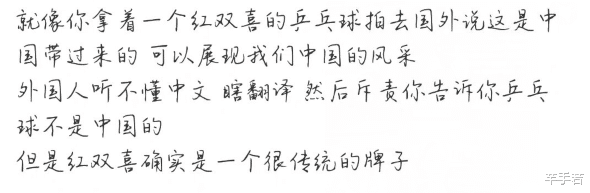 就像你拿着一个红双喜的乒乓球拍去国外说这是中
国带过来的 可以展现我们中国的风采
外国人听不懂中文 瞎翻译 然后斥责你告诉你乒乓
球不是中国的
但是红双喜确实是一个很传统的牌子